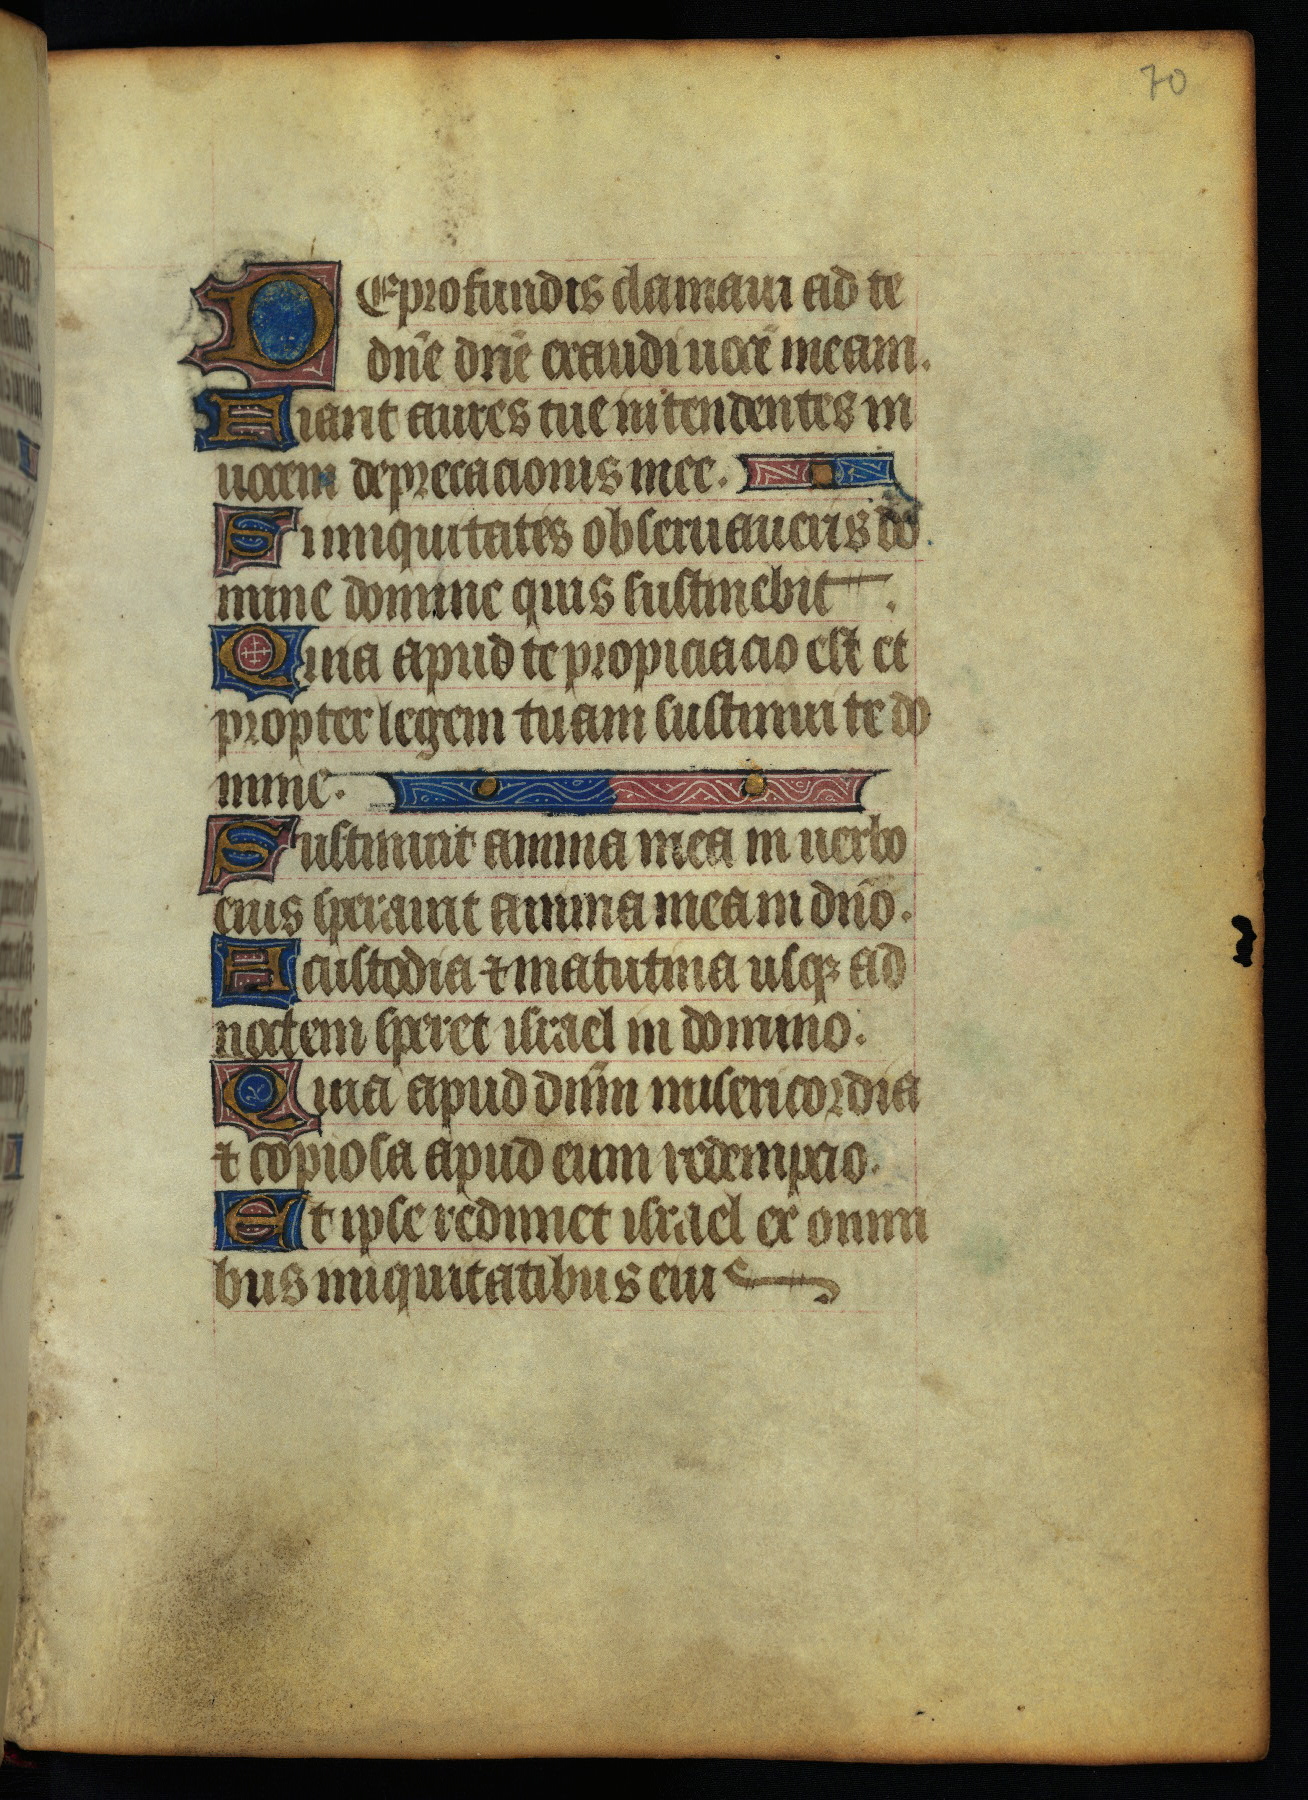 70
De profundis clamaui ad te
dn̄e dn̄e exaudi uocē meam.
Fiant aures tue intendentes in
uocem deprecacionis mee.
Si iniquitates obseruaueris do
mine domine quis sustinebit.
Quia apud te propiciacio est et
propter legem tuam sustinui te do
mine.
Sustinuit anima mea in uerbo
eius sperauit anima mea in dn̄o.
A custodia ⁊ matutina usqꝫ ad
noctem speret israel in domino.
Quia apud dn̄m misericordia
⁊ copiosa apud eum redempcio.
Et ipse redimet israel ex omni
bus iniquitatibus eius